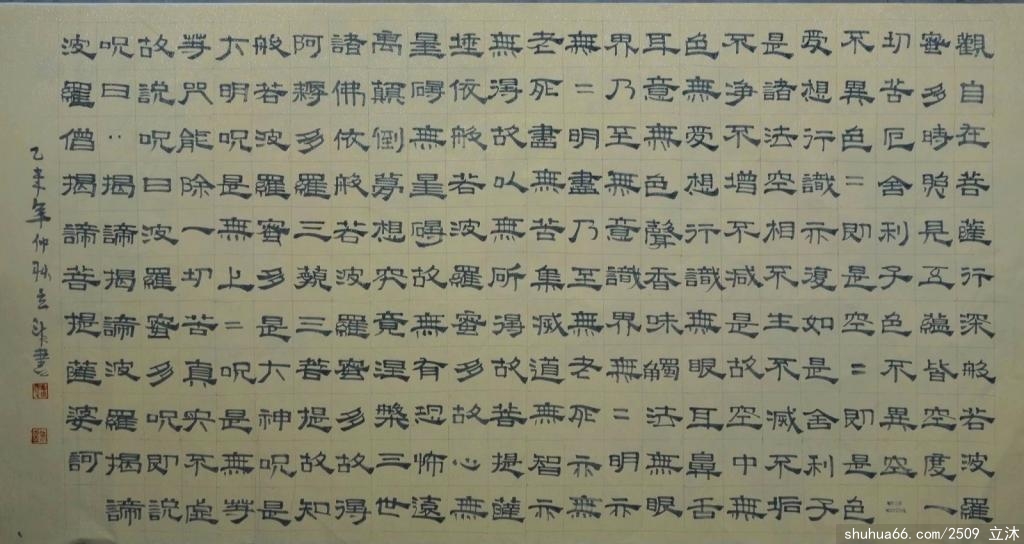 觀自在菩薩行深般若波羅
蜜多時照見五蘊皆空度一
切苦厄舍利子色不異空=
不異色=即是空=即是色
受想行識亦復如是舍利子
是諸法空相不生不滅不垢
不淨不增不減是故空中無
色無受想行識無眼耳鼻舌
身意無色聲香味觸法無眼
界乃至無意識界無=明亦
無=明盡乃至無老死亦無
老死盡無苦集滅道無智亦
無得故以無所得故菩提薩
埵依般若波羅蜜多故心無
罣礙無罣礙故無有恐怖遠
離顛倒夢想究竟涅槃三世
諸佛依般若波羅蜜多故得
阿耨多羅三藐三菩提故知
般若波羅蜜多是大神呪是
大明呪是無上=呪是無等
等咒能除一切苦真实不虛
故說呪曰波羅蜜多呪即說
呪曰：揭諦揭諦波羅揭諦
波羅僧揭諦菩提薩婆訶
乙未年仲秋立沐書
shuhua66.com/2509 立沐